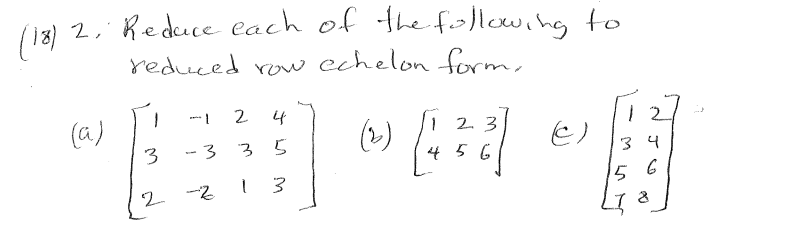 (18) 2. Reduce each of the following to
reduced row echelon form.
(a) [1 -1 2 4
3 -3 3 5
2 -2 1 3]
(b) [1 2 3
4 5 6]
(c) [1 2
3 4
5 6
7 8]